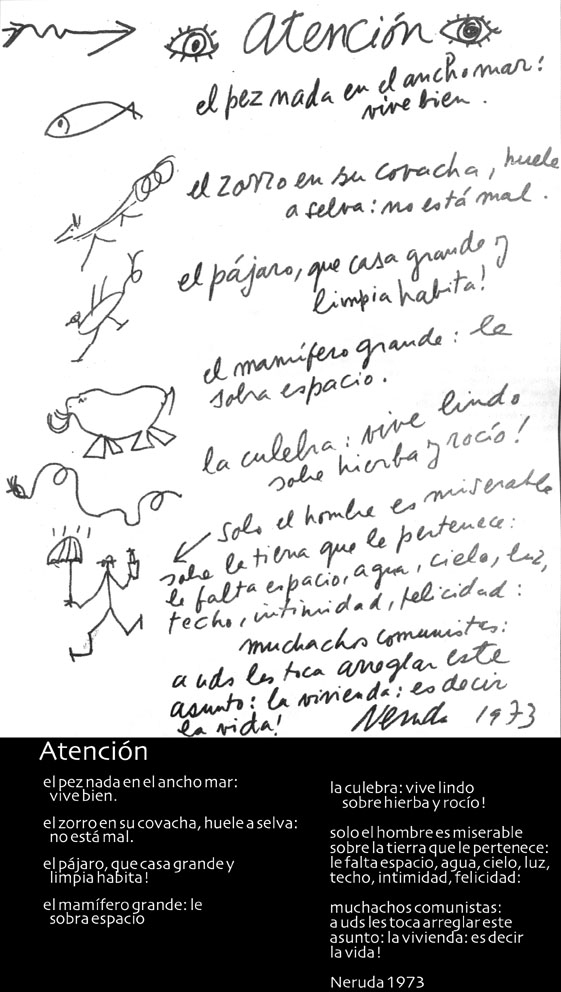 Atención
el pez nada en el ancho mar:
vive bien.
el zorro en su covacha, huele
a selva: no está mal.
el pájaro, que casa grande y
limpia habita!
el mamífero grande: le
sobra espacio.
la culebra: vive lindo
sobre hierba y rocío!
solo el hombre es miserable
sobre la tierra que le pertenece:
le falta espacio, agua, cielo, luz,
techo, intimidad, felicidad:
muchachos comunistas:
a uds les toca arreglar este
asunto: la vivienda: es decir
la vida!
Neruda 1973
Atención
el pez nada en el ancho mar:
vive bien.
el zorro en su covacha, huele a selva:
no está mal.
el pájaro, que casa grande y
limpia habita!
el mamífero grande: le
sobra espacio
la culebra: vive lindo
sobre hierba y rocío!
solo el hombre es miserable
sobre la tierra que le pertenece:
le falta espacio, agua, cielo, luz,
techo, intimidad, felicidad:
muchachos comunistas:
a uds les toca arreglar este
asunto: la vivienda: es decir
la vida!
Neruda 1973